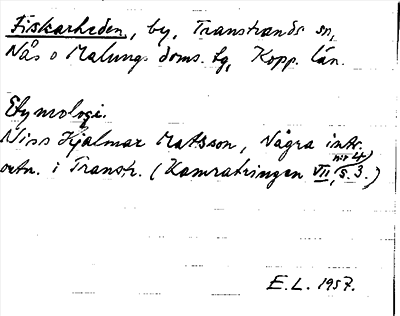 Fiskarheden, by, Transtrands sn,
Nås o Malungs doms. tg, Kopp. län.
Etymologi.
Niss Hjalmar Matsson, Några intr.
nr 4)
ortn. i Transtr. (Kamratringen VII, s. 3.)
E. L. 1957.